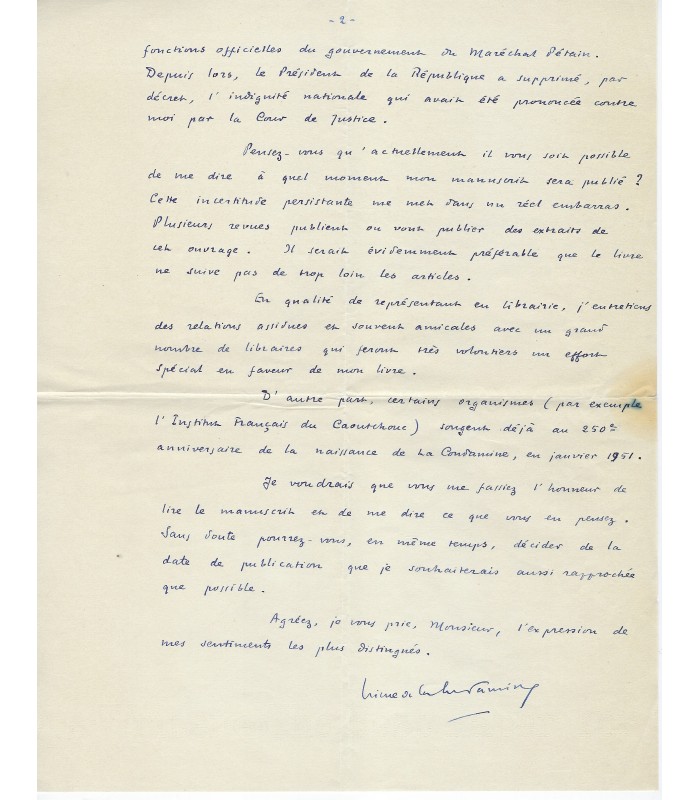 - 2 -
fonctions officielles du gouvernement du Maréchal Pétain.
Depuis lors, le Président de la République a supprimé, par
décret, l'indignité nationale qui avait été prononcée contre
moi par la Cour de Justice.
Pensez-vous qu'actuellement il vous soit possible
de me dire à quel moment mon manuscrit sera publié ?
Cette incertitude persistante me met dans un réel embarras.
Plusieurs revues publient ou vont publier des extraits de
cet ouvrage. Il serait évidemment préférable que le livre
ne suive pas de trop loin les articles.
En qualité de représentant en librairie, j'entretiens
des relations assidues et souvent amicales avec un grand
nombre de libraires qui feront très volontiers un effort
spécial en faveur de mon livre.
D'autre part, certains organismes (par exemple
l'Institut Français du Caoutchouc) songent déjà au 250e
anniversaire de la naissance de La Condamine, en janvier 1951.
Je voudrais que vous me fassiez l'honneur de
lire le manuscrit et de me dire ce que vous en pensez.
Sans doute pourrez-vous, en même temps, décider de la
date de publication que je souhaiterais aussi rapprochée
que possible.
Agréez, je vous prie, Monsieur, l'expression de
mes sentiments les plus distingués.
de la Condamine